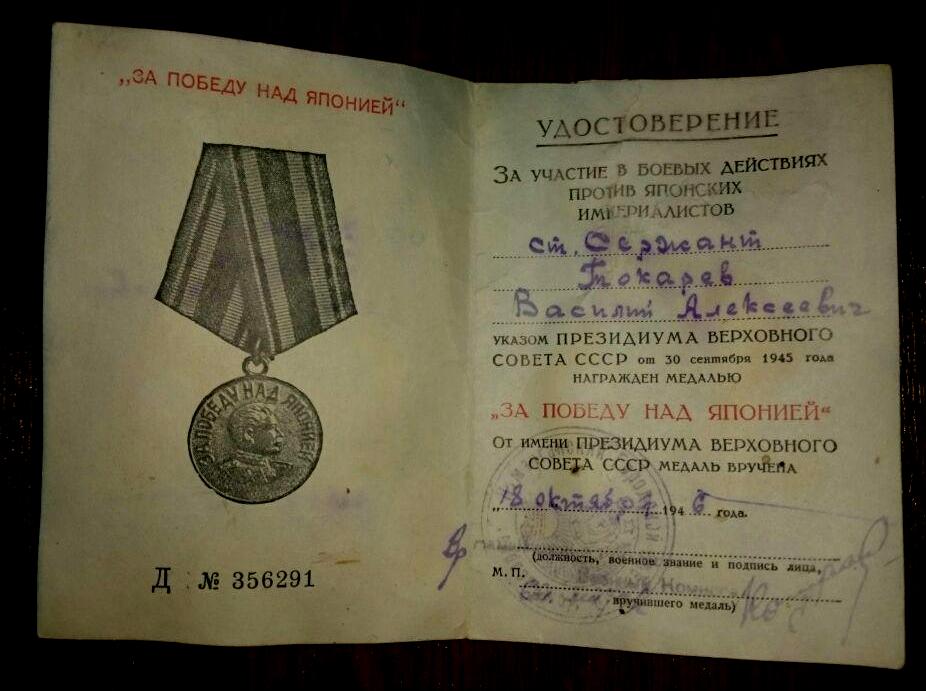 „ЗА ПОБЕДУ НАД ЯПОНИЕЙ“
ЗА ПОБЕДУ НАД ЯПОНИЕЙ
Д № 356291
УДОСТОВЕРЕНИЕ
ЗА УЧАСТИЕ В БОЕВЫХ ДЕЙСТВИЯХ
ПРОТИВ ЯПОНСКИХ
ИМПЕРИАЛИСТОВ
ст. Сержант
Токарев
Василий Алексеевич
УКАЗОМ ПРЕЗИДИУМА ВЕРХОВНОГО
СОВЕТА СССР от 30 сентября 1945 года
НАГРАЖДЕН МЕДАЛЬЮ
„ЗА ПОБЕДУ НАД ЯПОНИЕЙ“
ОТ ИМЕНИ ПРЕЗИДИУМА ВЕРХОВНОГО
СОВЕТА СССР МЕДАЛЬ ВРУЧЕНА
„18 октября 1946 года.
(должность, военное звание и подпись лица,
М. П.
вручившего медаль)